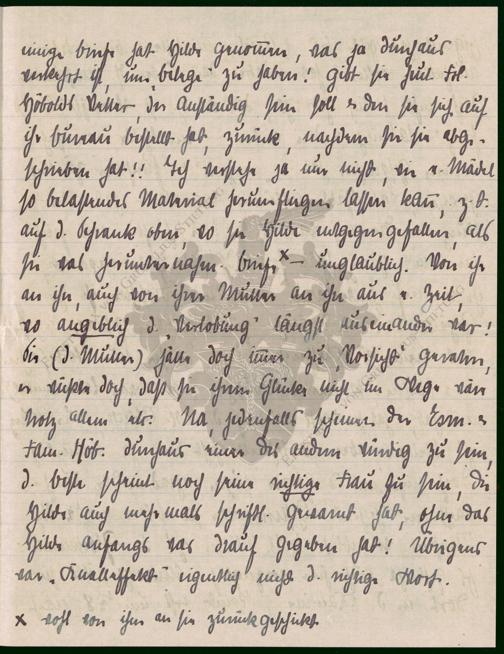 einige briefe hat Hilde genommen, was ja durchaus
verkehrt ist, um „belege“ zu haben! gibt sie heut Frl.
Höbolds Vetter, der anständig sein soll u. den sie sich auf
ihr bureau bestellt hat, zurück, nachdem sie sie abge-
schrieben hat!! Ich verstehe ja nur nicht, wie e. Mädel
so belastendes Material herumfliegen lassen kann, z. b.
auf d. Schrank oben, wo sie Hilde entgegengefallen, als
sie was herunternahm. briefe x – unglaublich. Von ihr
an ihn, auch von ihrer Mutter an ihn aus e. Zeit,
wo angeblich d. Verlobung längst auseinander war!
die (d. Mutter) hätte doch immer zu „Vorsicht“ geraten,
er wüßte doch, daß sie ihrem Glücke nicht im Wege wäre
trotz allem etc. Na, jedenfalls scheinen der Esm. u.
Fam. Höb. durchaus einer des andern würdig zu sein,
d. beste scheint noch seine richtige Frau zu sein, die
Hilde auch mehrmals schriftl. gewarnt hat, ohne das
Hilde anfangs was drauf gegeben hat! Übrigens
war „Knalleffekt“ eigentlich nicht d. richtige Wort.
x wohl von ihm an sie zurückgeschickt